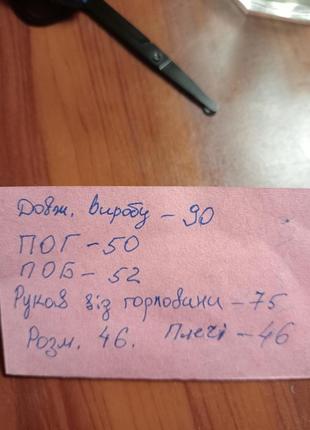 Довж. виробу - 90
ПОГ - 50
ПОБ - 52
Рукав від горловини - 75
Розм. 46. Плечі - 46